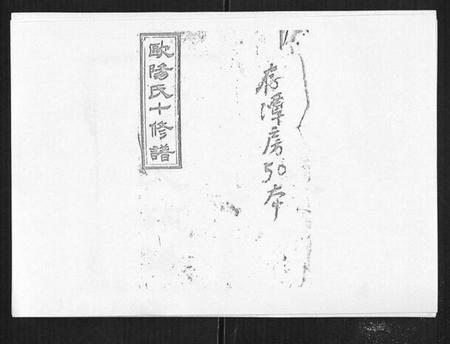 存潭房50本
歐陽氏十修譜